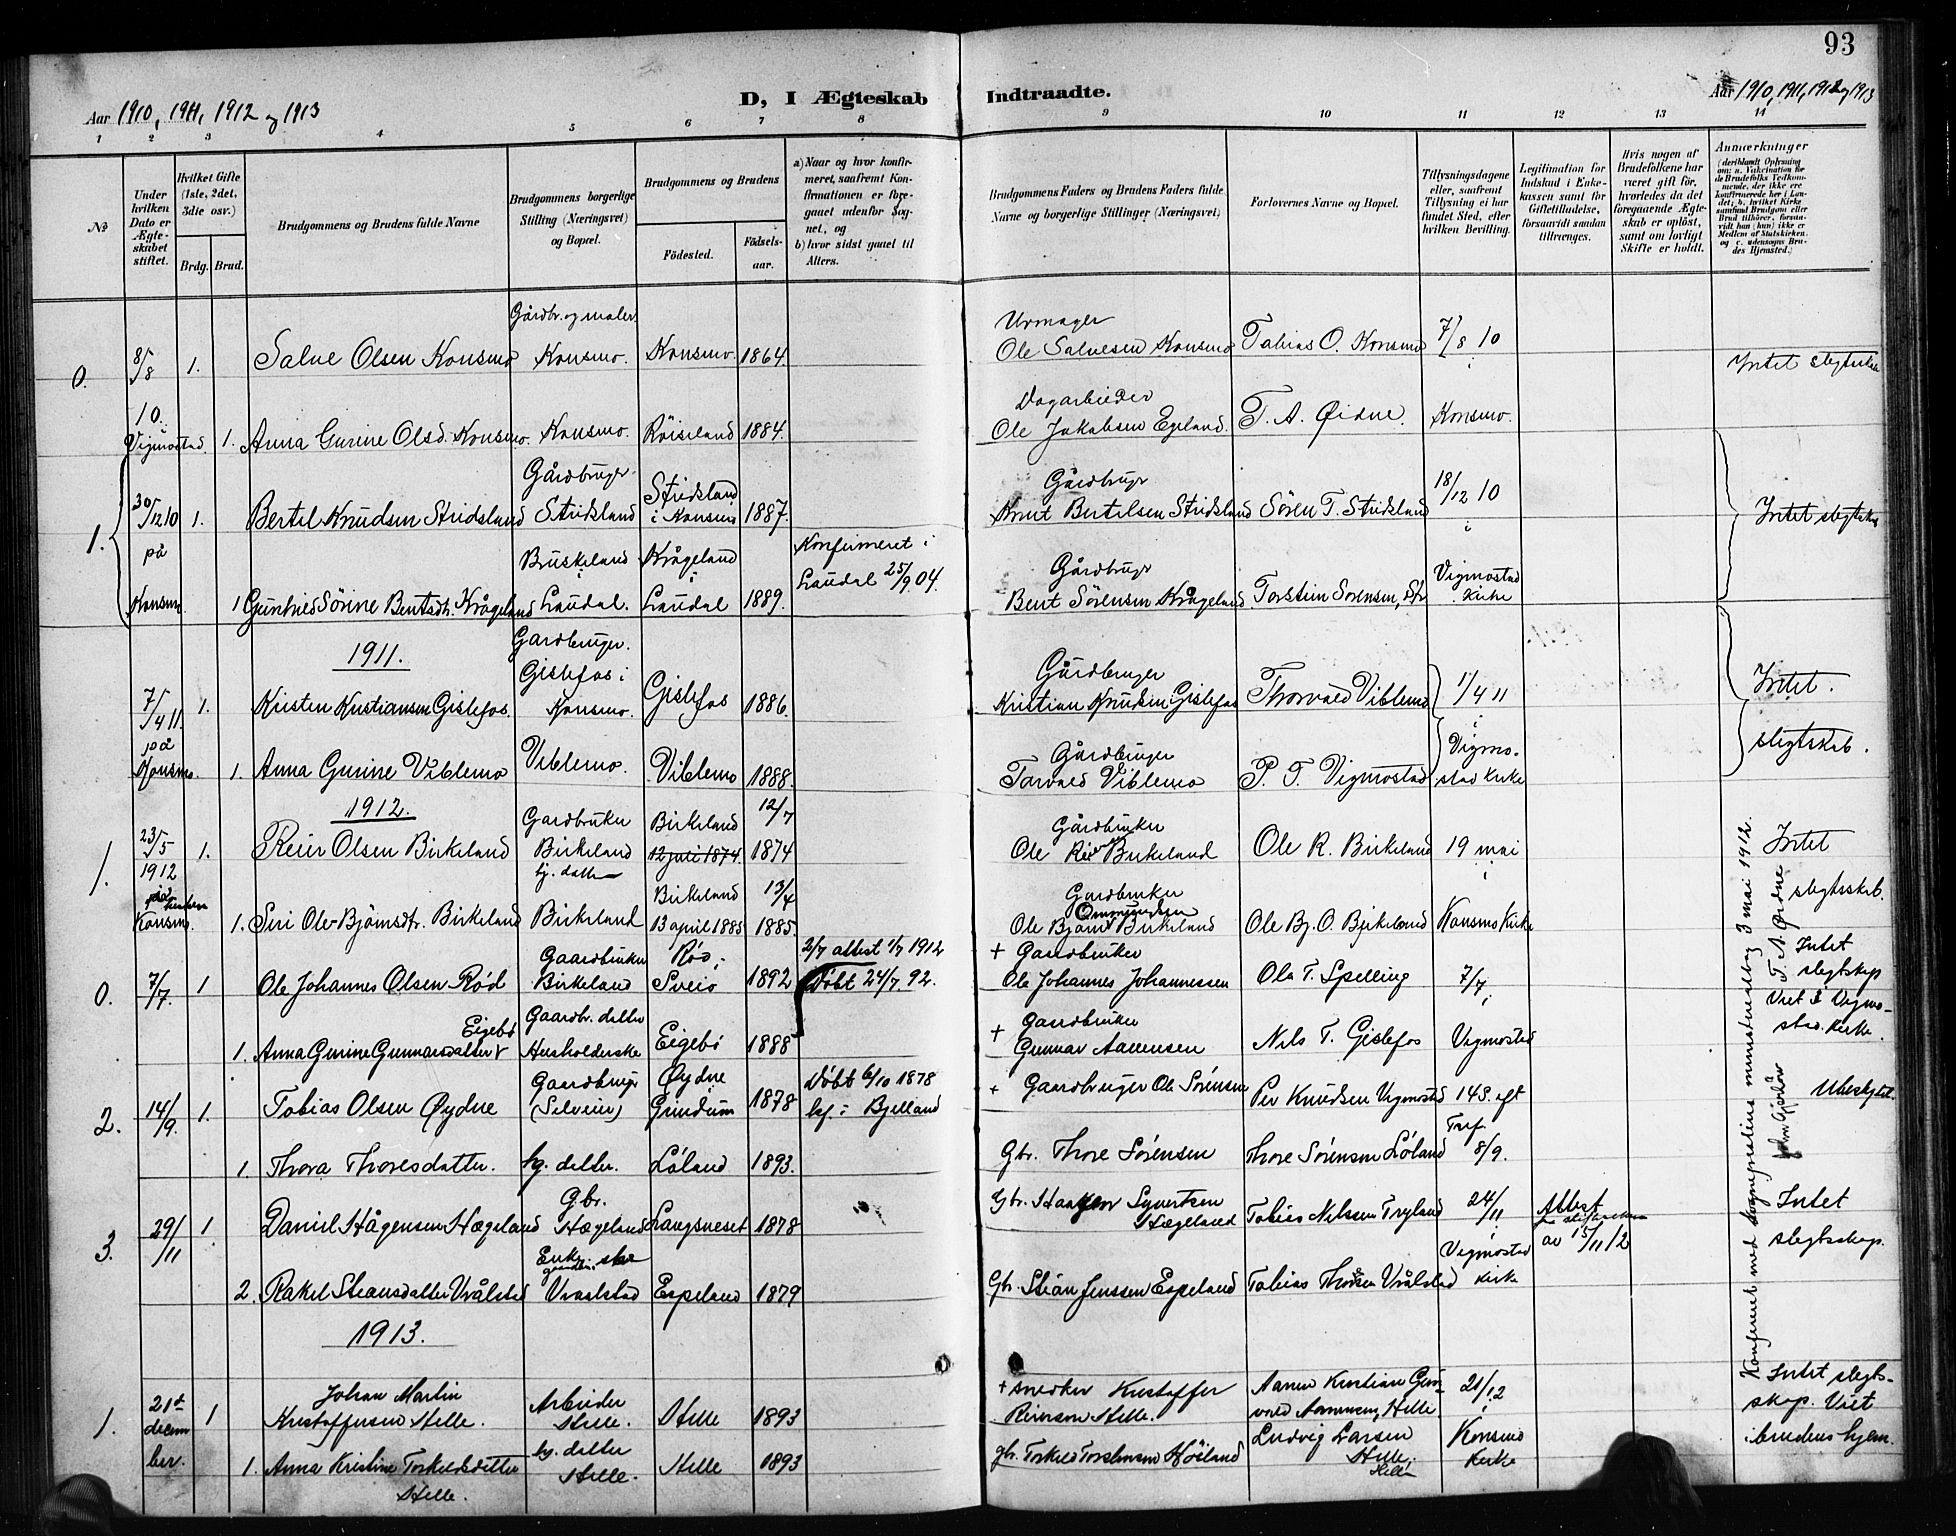 93
D, I Ægteskab Indtraadte.
Aar 1910, 1911, 1912 og 1913
Aar 1910, 1911, 1912 og 1913
1 2 3 4 5 6 7 8 9 10 11 12 13 14
No
Under hvilken Dato er Ægteskabet stiftet.
Hvilket Gifte (1ste, 2det, 3die osv.)
Brdg. Brud.
Brudgommens og Brudens fulde Navne
Brudgommens borgerlige Stilling (Næringsvei) og Bopæl.
Brudgommens og Brudens
Fødested. Fødselsaar.
a) Naar og hvor konfirmeret, saafremt Konfirmationen er foregaaet udenfor Sognet, og
b) hvor sidst gaaet til Alters.
Brudgommens Faders og Brudens Faders fulde Navne og borgerlige Stillinger (Næringsvei)
Forlovernes Navne og Bopæl.
Tillysningsdagene eller, saafremt Tillysning ei har fundet Sted, efter hvilken Bevilling.
Legitimation for Indskud i Enkekassen samt for Giftetilladelse, forsaavidt saadan tiltrænges.
Hvis nogen af Brudefolkene har været gift før, hvorledes da det foregaaende Ægteskab er opløst, samt om lovligt Skifte er holdt.
Anmærkninger (deriblandt Oplysning om: a. Vakcination for de Brudefolks Vedkommende, der ikke ere konfirmerede her i Landet; b. hvilken Kirke samtlige Brudgom eller Brud tilhører, forsaavidt han (hun) ikke er Medlem af Statskirken, og c. udensogns Brudes Hjemsted.)
Gårdbr. og maler. Urmager
0. 8/8 1. Salve Olsen Konsmo Konsmo. Konsmo. 1864. Ole Salvesen Konsmo Tobias O. Konsmo 7/8 10 Intet slegtskab
10. i
Dagarbeider
Vigmostad 1. Anna Gurine Olsd. Konsmo. Konsmo. Röiseland 1884. Ole Jakobsen Egeland. T. A. Øidne. Konsmo.
Gårdbruger Gårdbruger
1. 30/12 10 1. Bertel Knudsen Stridsland Stridsland Stridsland i Konsmo 1887. Knut Bertelsen Stridsland Sören T. Stridsland 18/12 10 Intet slegtskab
på Konsmo i
Buskeland Krågeland Konfirmeret i Gårdbruger
1 Guntied Sörine Bentsdtr. Krågeland Laudal. Laudal 1889. Laudal 25/9 04. Bent Sörensen Krågeland Torstein Sorensen, Vigmostad Kirke
1911.
Gardbruger. Gårdbruger
7/4 11. 1. Kristen Kristiansen Gislefos. Gislefos i Konsmo. Gislefos 1886. Kristian Knudsen Gislefos Thorvald Viblemo 1/4 11 Intet. slegtskab.
på i
Gårdbruger
Konsmo. 1. Anna Gurine Viblemo Viblemo. Viblemo 1888. Torvald Viblemo P. T. Vigmostad Vigmostad Kirke
1912.
1. 23/5 1912 1. Reier Olsen Birkeland Gardbruker Birkeland Birkeland 12 juli 1874. 12/7 1874 Gårdbruker Ole Reiersen Birkeland Ole R. Birkeland 19 mai Intet slegtsskab.
i
Konsmo. 1. Siri Ole-Björnsdtr. Birkeland gj. datter Birkeland Birkeland 13 april 1885 13/4 1885. Gardbruker Ole Björn Ommundsen Birkeland Ole Bj. O. Bjrkeland Konsmo Kirke
Konfirmert med dom gjörlör T. A. Øidne
0. 7/7. 1 Ole Johannes Olsen Rød Gaardbruker Birkeland Röd, Sveio 1892 2/7 attest 1/7 1912 Döbt 24/7. 92. + Gaardbruker Ole Johannes Johannessen Ola T. Spelling 7/7 i Intet slegtskap Viet i Vigmostad. kirke
1. Anna Gurine Gunnarsdatter Eigebö Gaardbr. datter Husholderske Eigebö 1888 + Gaardbruker Gunnar Aanensen Nils T. Gislefos Vigmostad
2. 14/9. 1. Tobias Olsen Øydne Gaardbruger Øydne Grindum 1878 Döbt 6/10 1878 kf. i Bjelland + Gaardbruger Ole Sörensen Per Knudsen Vigmostad 14S. eft Ubeslegtet.
Tref.
1. Thora Thoresdatter. hg. datter. Löland 1893. Gbr. Thore Sörensen Thore Sörensen Löland 8/9.
3. 29/11 1 Daniel Hågensen Hægeland Gbr. Hægeland Langsneset 1878 Gbr. Haagen Syvertsen Hægeland Tobias Nilssen Tryland 24/11 Attest av 15/11 12 Intet slegtsskap.
2. Rakel Steansdatter Vrålstad Vraalstad Espeland 1879 Gbr. Stean Jenssen Espeland Tobias Thorsen Vrålstad Vigmostad Kirke
1913.
1. 21de decem ber. 1 Johan Martin Kristoffersen Stelle. Arbeider Stelle. Stelle 1893 + snedker Kristoffer Reierson Stelle. 21/12 i Intet slegtskap. Viet i brudens hjem.
1. Anna Kristine Torkeldsdatter Stelle. hg. datter Stelle. Stelle 1893 gbr. Torkeld Torstensen Höiland Ludvig Larsen Stelle. Konsmo Kirke